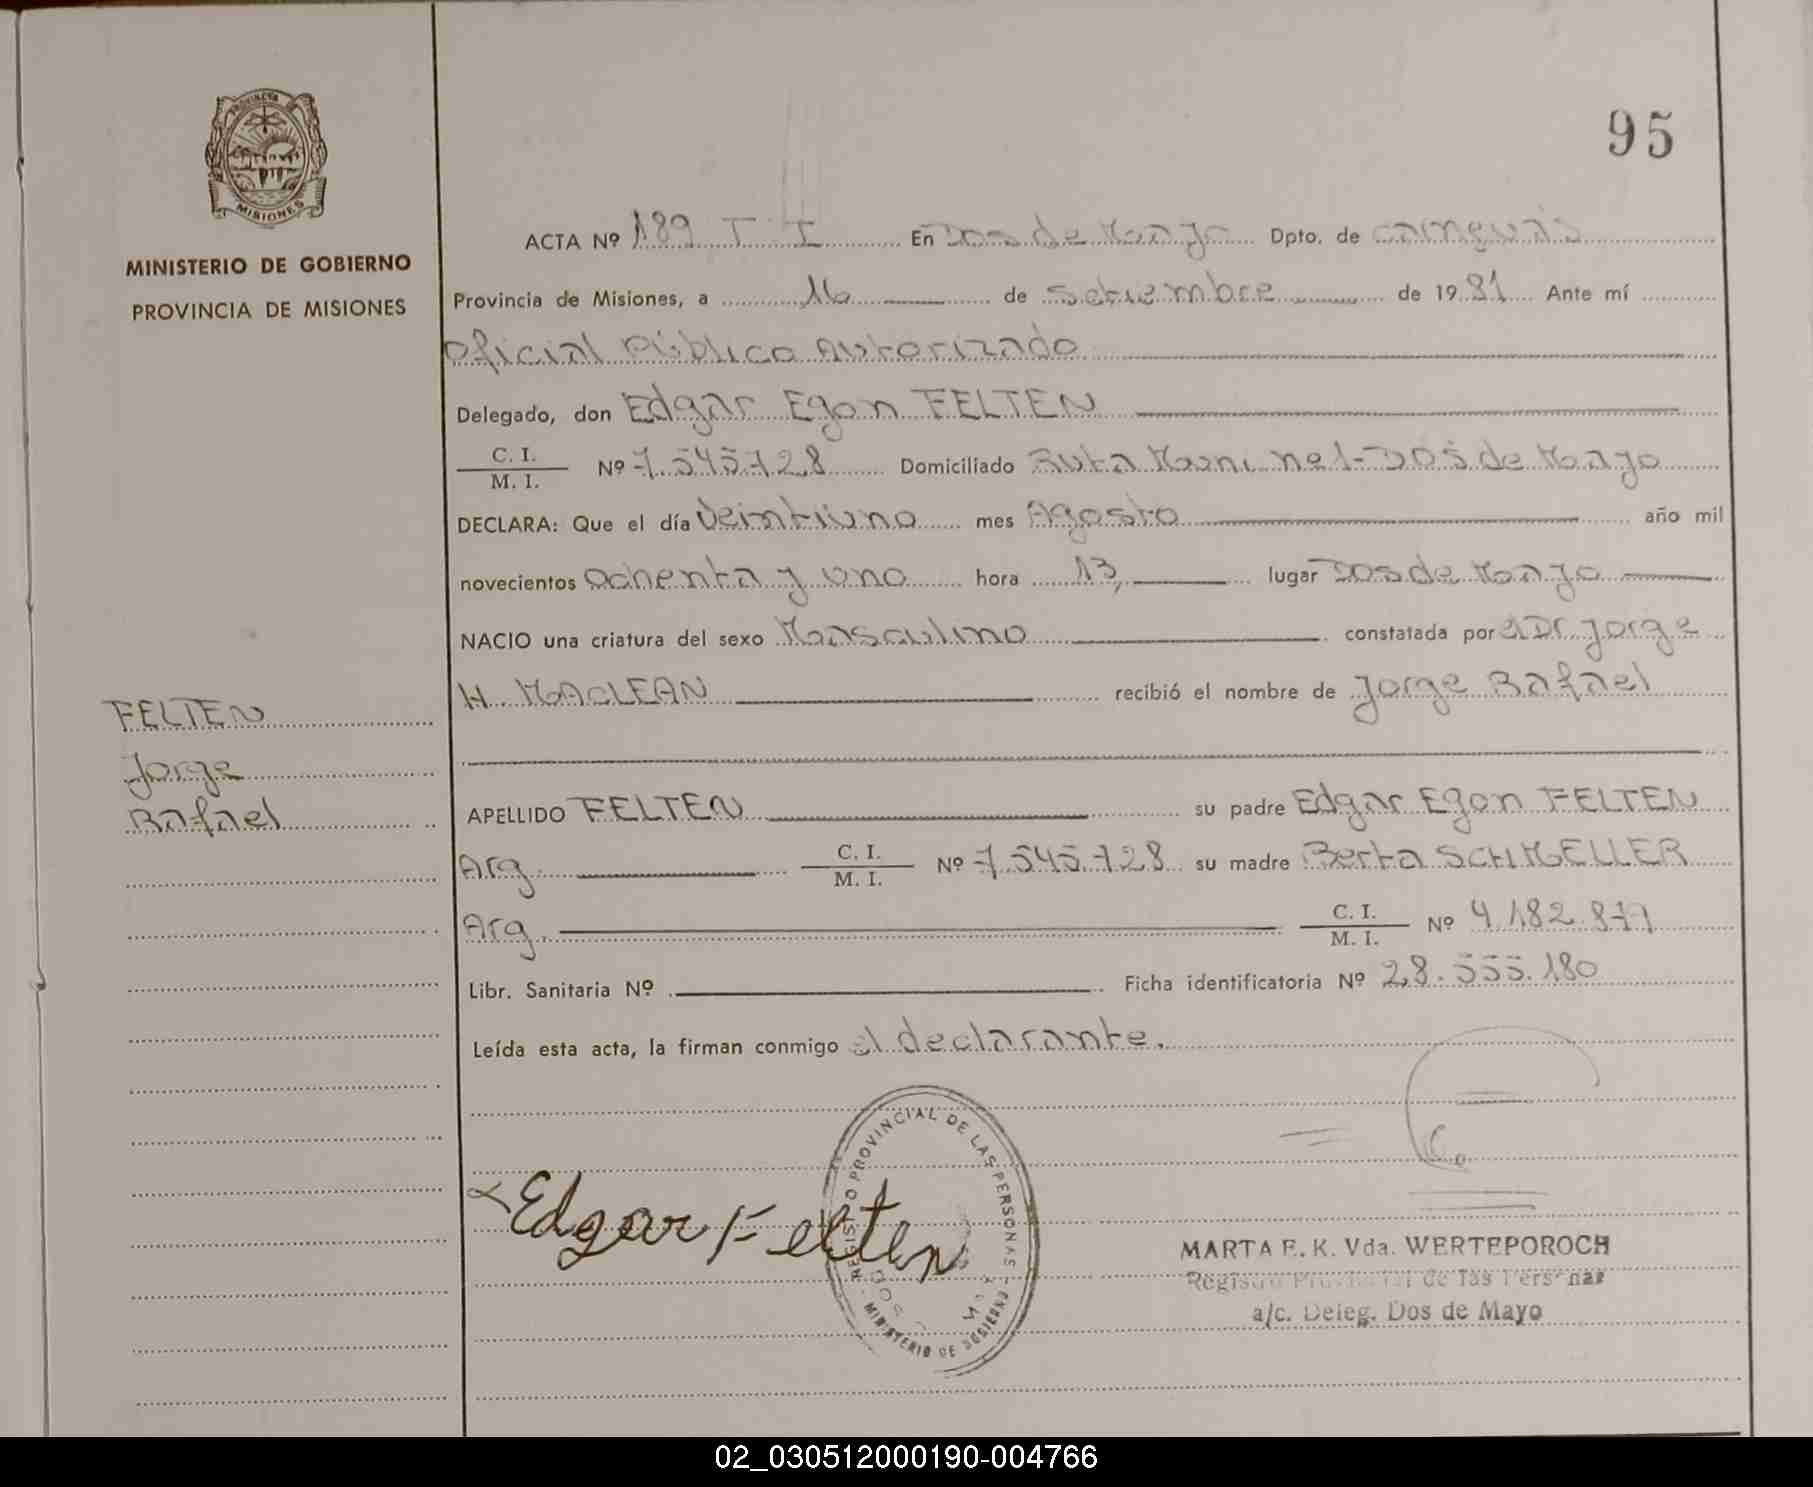 PROVINCIA DE
MISIONES
MINISTERIO DE GOBIERNO
PROVINCIA DE MISIONES
95
ACTA Nº 189 T I En Dos de Mayo Dpto. de Cainguás
Provincia de Misiones, a 16 de Setiembre de 1981 Ante mí
Oficial Público Autorizado
Delegado, don Edgar Egon FELTEN
C. I.
M. I. Nº 7.545.728 Domiciliado Ruta Nac. nº 1-Dos de Mayo
DECLARA: Que el día Veintiuno mes Agosto año mil
novecientos Ochenta y uno hora 13, lugar Dos de Mayo
NACIO una criatura del sexo Masculino constatada por el Dr. Jorge
H. MACLEAN recibió el nombre de Jorge Rafael
FELTEN
Jorge
Rafael
APELLIDO FELTEN su padre Edgar Egon FELTEN
Arg. C. I.
M. I. Nº 7.545.728 su madre Berta SCHMELLER
Arg. C. I.
M. I. Nº 4.182.871
Libr. Sanitaria Nº Ficha identificatoria Nº 28.555.180
Leída esta acta, la firman conmigo el declarante.
Edgar Felten
REGISTRO PROVINCIAL DE LAS PERSONAS
MINISTERIO DE GOBIERNO
MARTA E. K. Vda. WERTEPOROCH
Registro Provincial de las Personas
a/c. Deleg. Dos de Mayo
02_030512000190-004766